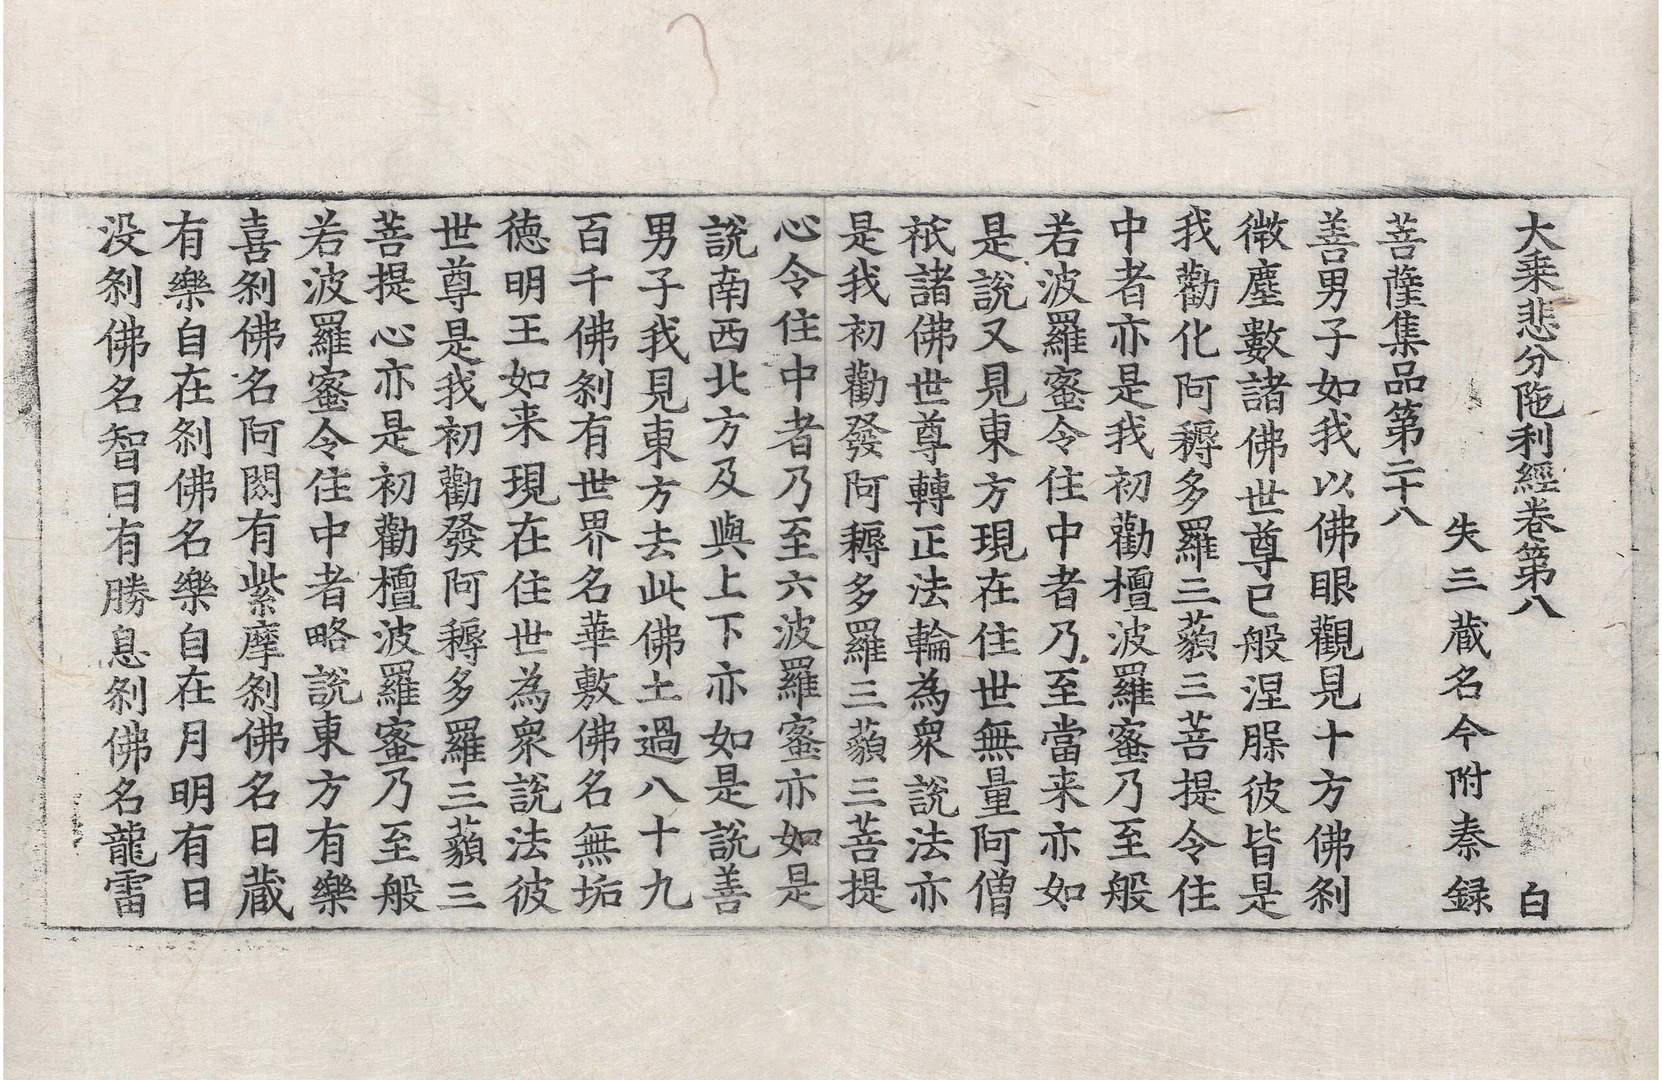 大乗悲分陁利經卷第八 白
失三藏名今附秦録
菩薩集品第二十八
善男子如我以佛眼觀見十方佛剎
微塵數諸佛世尊已般涅槃彼皆是
我勸化阿耨多羅三藐三菩提令住
中者亦是我初勸檀波羅蜜乃至般
若波羅蜜令住中者乃至當来亦如
是說又見東方現在住世無量阿僧
祇諸佛世尊轉正法輪為衆說法亦
是我初勸發阿耨多羅三藐三菩提
心令住中者乃至六波羅蜜亦如是
說南西北方及與上下亦如是說善
男子我見東方去此佛土過八十九
百千佛剎有世界名華敷佛名無垢
德明王如来現在住世為衆說法彼
世尊是我初勸發阿耨多羅三藐三
菩提心亦是初勸檀波羅蜜乃至般
若波羅蜜令住中者略說東方有樂
喜剎佛名阿閦有紫摩剎佛名日藏
有樂自在剎佛名樂自在月明有日
没剎佛名智日有勝息剎佛名龍雷